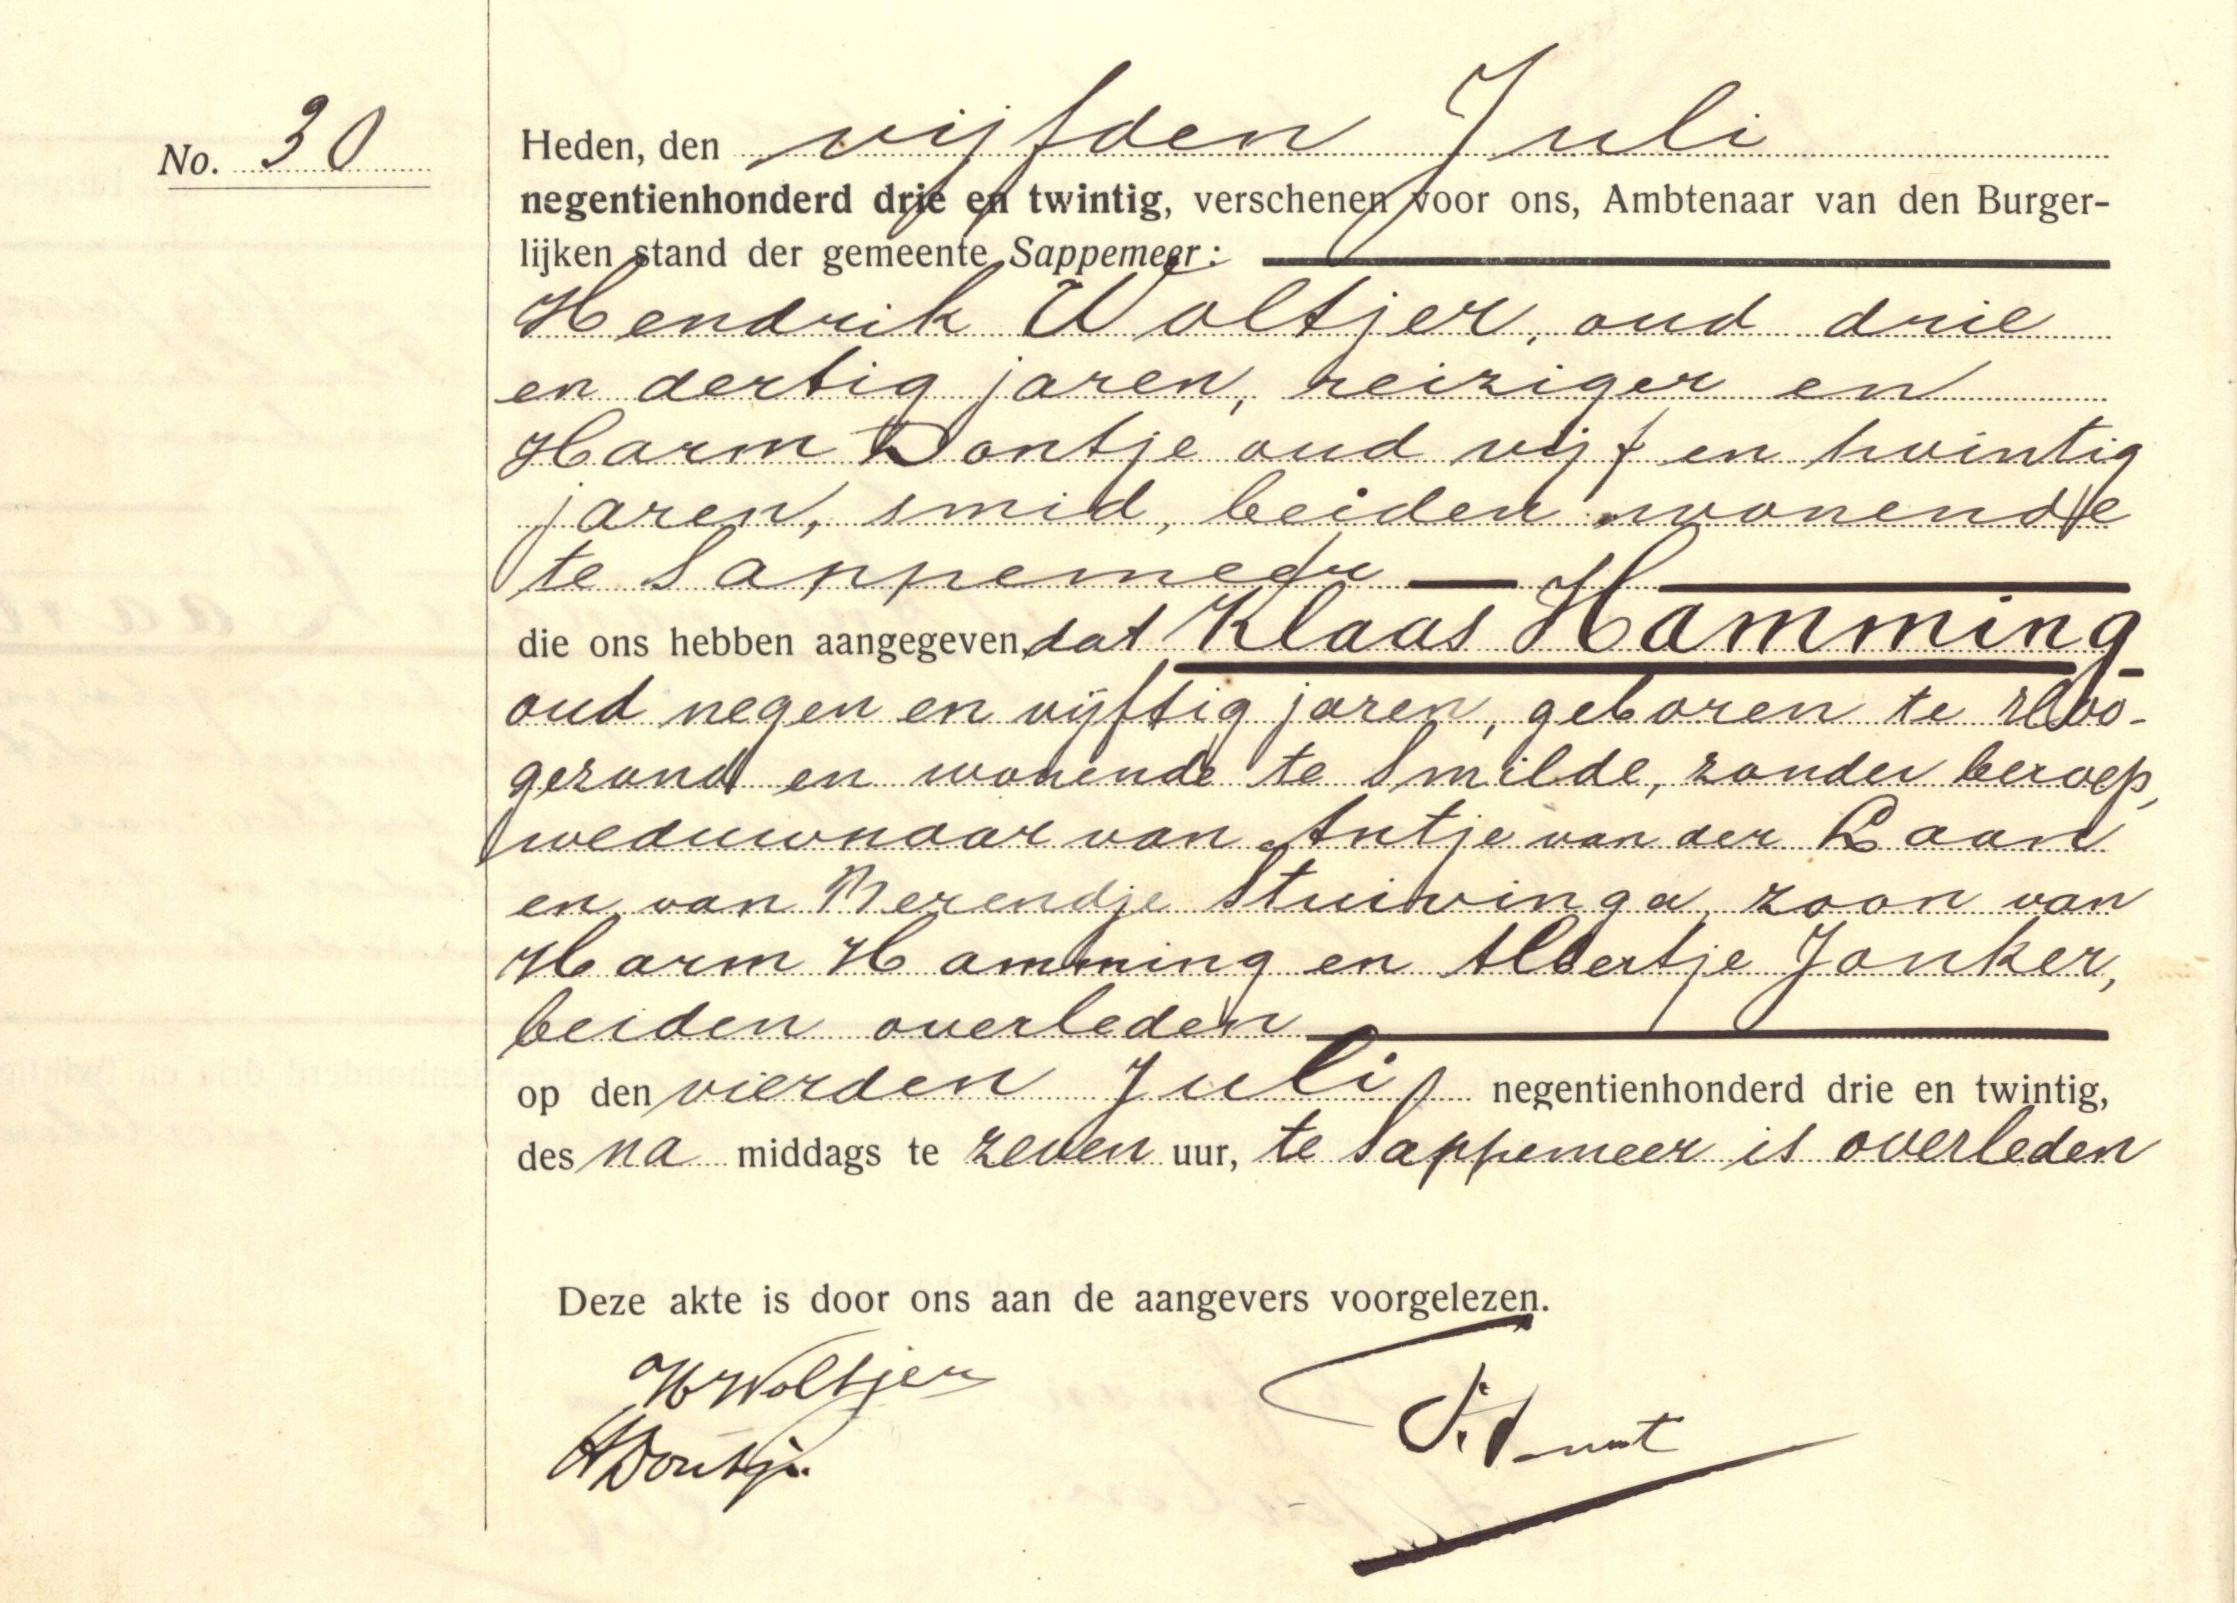 No. 30
Heden, den vijfden Juli
negentienhonderd drie en twintig, verschenen voor ons, Ambtenaar van den Burger-
lijken stand der gemeente Sappemeer:
Hendrik Woltjer, oud drie
en dertig jaren, reiziger en
Harm Dontje oud vijf en twintig
jaren, smid, beiden wonende
te Sappemeer
die ons hebben aangegeven, dat Klaas Hamming
oud negen en vijftig jaren, geboren te Hoo-
gezand en wonende te Smilde, zonder beroep,
weduwnaar van Antje van der Laan
en van Berendje Stuivinga, zoon van
Harm Hamming en Albertje Jonker,
beiden overleden
op den vierden Juli negentienhonderd drie en twintig,
des na middags te zeven uur, te Sappemeer is overleden
Deze akte is door ons aan de aangevers voorgelezen.
H Woltjer
H Dontje